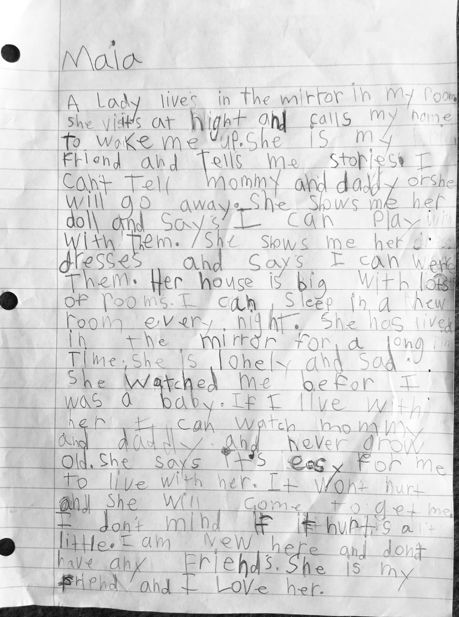 Maia
A Lady lives in the mirror in my room
she visits at night and calls my name
to wake me up. She is my
Friend and Tells me stories. I
Can't Tell mommy and daddy or she
will go away. She shows me her
doll and says I can play
with Them. She shows me her
dresses and says I can wear
Them. Her house is big with lots
of rooms. I can sleep in a new
room every night. She has lived
in the mirror for a long
Time. She is lonely and sad.
She watched me befor I
was a baby. If I live with
her I can watch mommy
and daddy and never grow
old. She says it's easy for me
to live with her. It won't hurt
and she will come to get me.
I don't mind if it hurts a
little. I am New here and don't
have any Friends. She is my
Friend and I Love her.